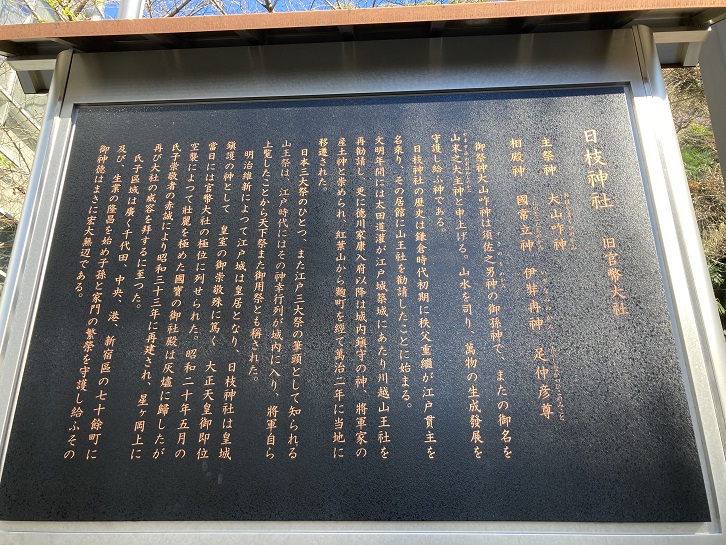 日枝神社　旧官幣大社
主祭神　大山咋神
相殿神　國常立神　伊弉冉神　足仲彦尊
御祭神大山咋神は須佐之男神の御孫神で、またの御名を
山末之大主神と申上げる。山水を司り、萬物の生成發展を
守護し給ふ神である。
日枝神社の歴史は鎌倉時代初期に秩父重繼が江戸貫主を
名乗り、その居館に山王社を勧請したことに始まる。
文明年間には太田道灌が江戸城築城にあたり川越山王社を
再勧請し、更に徳川家康入府以降は城内鎮守の神、將軍家の
産土神と崇められ、紅葉山から麹町を經て萬治二年に当地に
移遷された。
日本三大祭のひとつ、また江戸三大祭の筆頭として知られる
山王祭は、江戸時代にはその神幸行列が城内に入り、將軍自ら
上覧したことから天下祭また御用祭とも稱された。
明治維新によつて江戸城は皇居となり、日枝神社は皇城
鎮護の神として　皇室の御崇敬殊に篤く　大正天皇御即位
當日には官幣大社の極位に列せられた。昭和二十年五月の
空襲によつて壮麗を極めた國寶の御社殿は灰燼に歸したが
氏子崇敬者の赤誠により昭和三十三年に再建され、星ヶ岡上に
再び大社の威容を拝するに至つた。
氏子區域は廣く千代田、中央、港、新宿區の七十餘町に
及び、生業の隆昌を始め子孫と家門の繁栄を守護し給ふその
御神徳はまさに宏大無辺である。